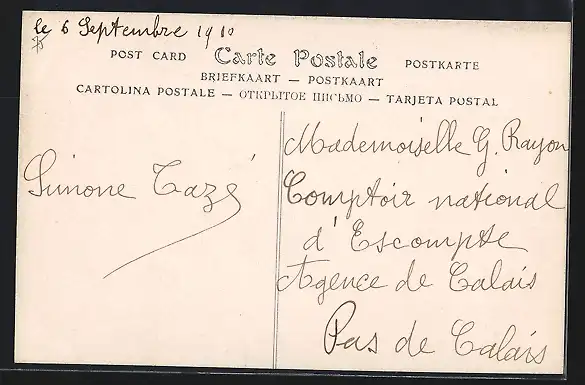 le 6 Septembre 1910
POST CARD Carte Postale POSTKARTE
BRIEFKAART — POSTKAART
CARTOLINA POSTALE — ОТКРЫТОЕ ПИСЬМО — TARJETA POSTAL
Simone Tazé
Mademoiselle G. Rayon
Comptoir national
d'Escompte
Agence de Calais
Pas de Calais